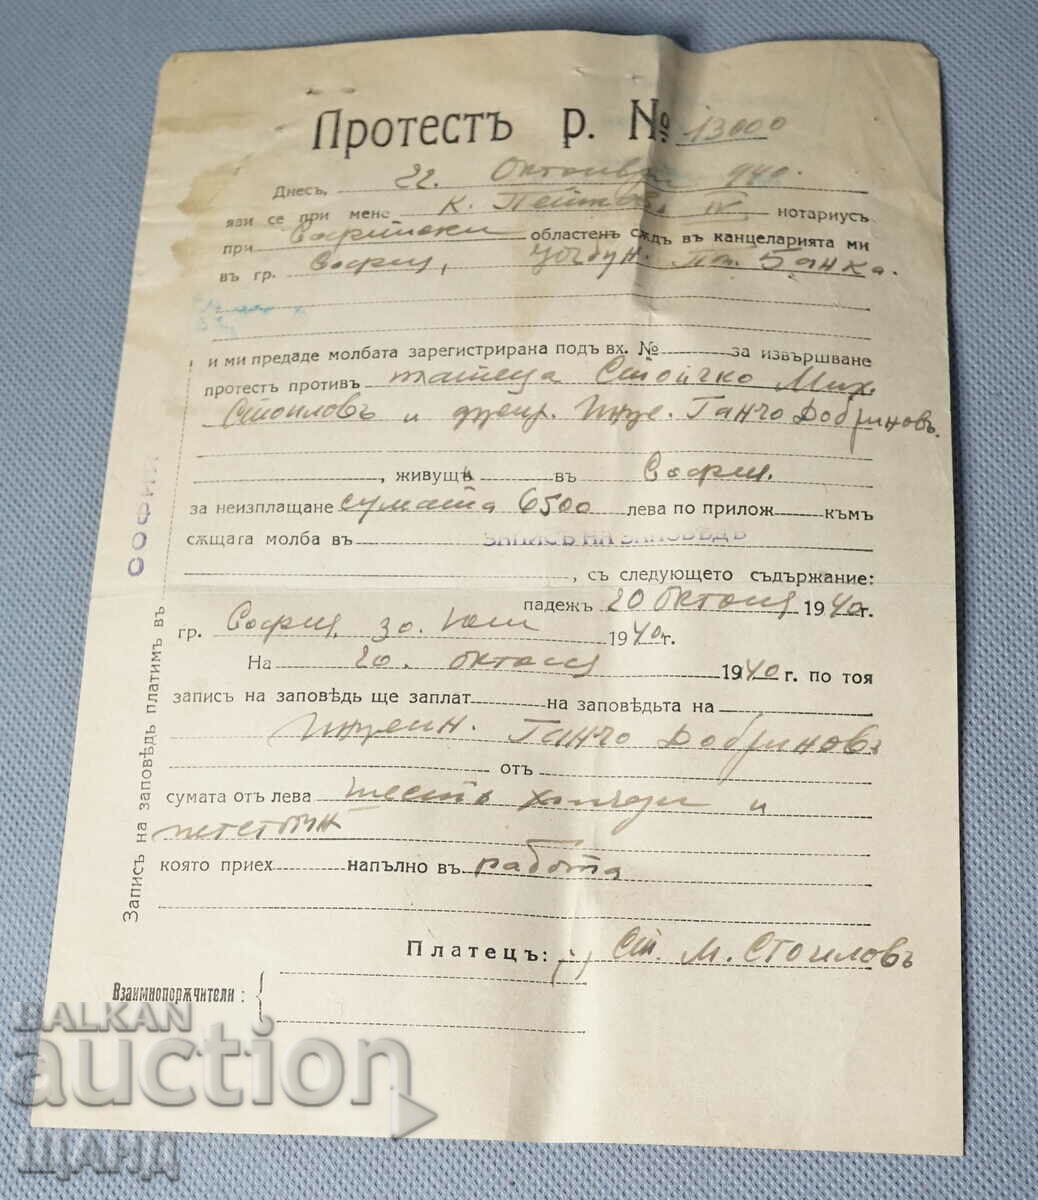 Протестъ р. № 13000
Днесъ, 22. Октомври 940.
яви се при мене К. IV, нотариусъ
при Софийски областенъ сѫдъ въ канцеларията ми
въ гр. София, Поп. Банка.
и ми предаде молбата зарегистрирана подъ вх. № за извършване
протестъ противъ платеца Стойчко Мих.
Стоиловъ и джир. Инж. Ганчо Добриновъ
, живущъ въ София.
за неизплащане сумата 6500 лева по прилож къмъ
сѫщата молба въ ЗАПИСЪ НА ЗАПОВѢДЪ
, съ следующето съдържание:
падежъ 20 октомв 1940 г.
гр. София, 30. Юли 1940 г.
На 20. октомв 1940 г. по тоя
записъ на заповѣдь ще заплат на заповѣдьта на
Инжен. Ганчо Добриновъ
отъ
сумата отъ лева шесть хиляди и
петстотин
която приех напълно въ работа
Платецъ: Ст. М. Стоиловъ
Взаимнопорѫчители :
Записъ на заповѣдь платимъ въ СОФИЯ
BALKAN
auction
ЩАНД